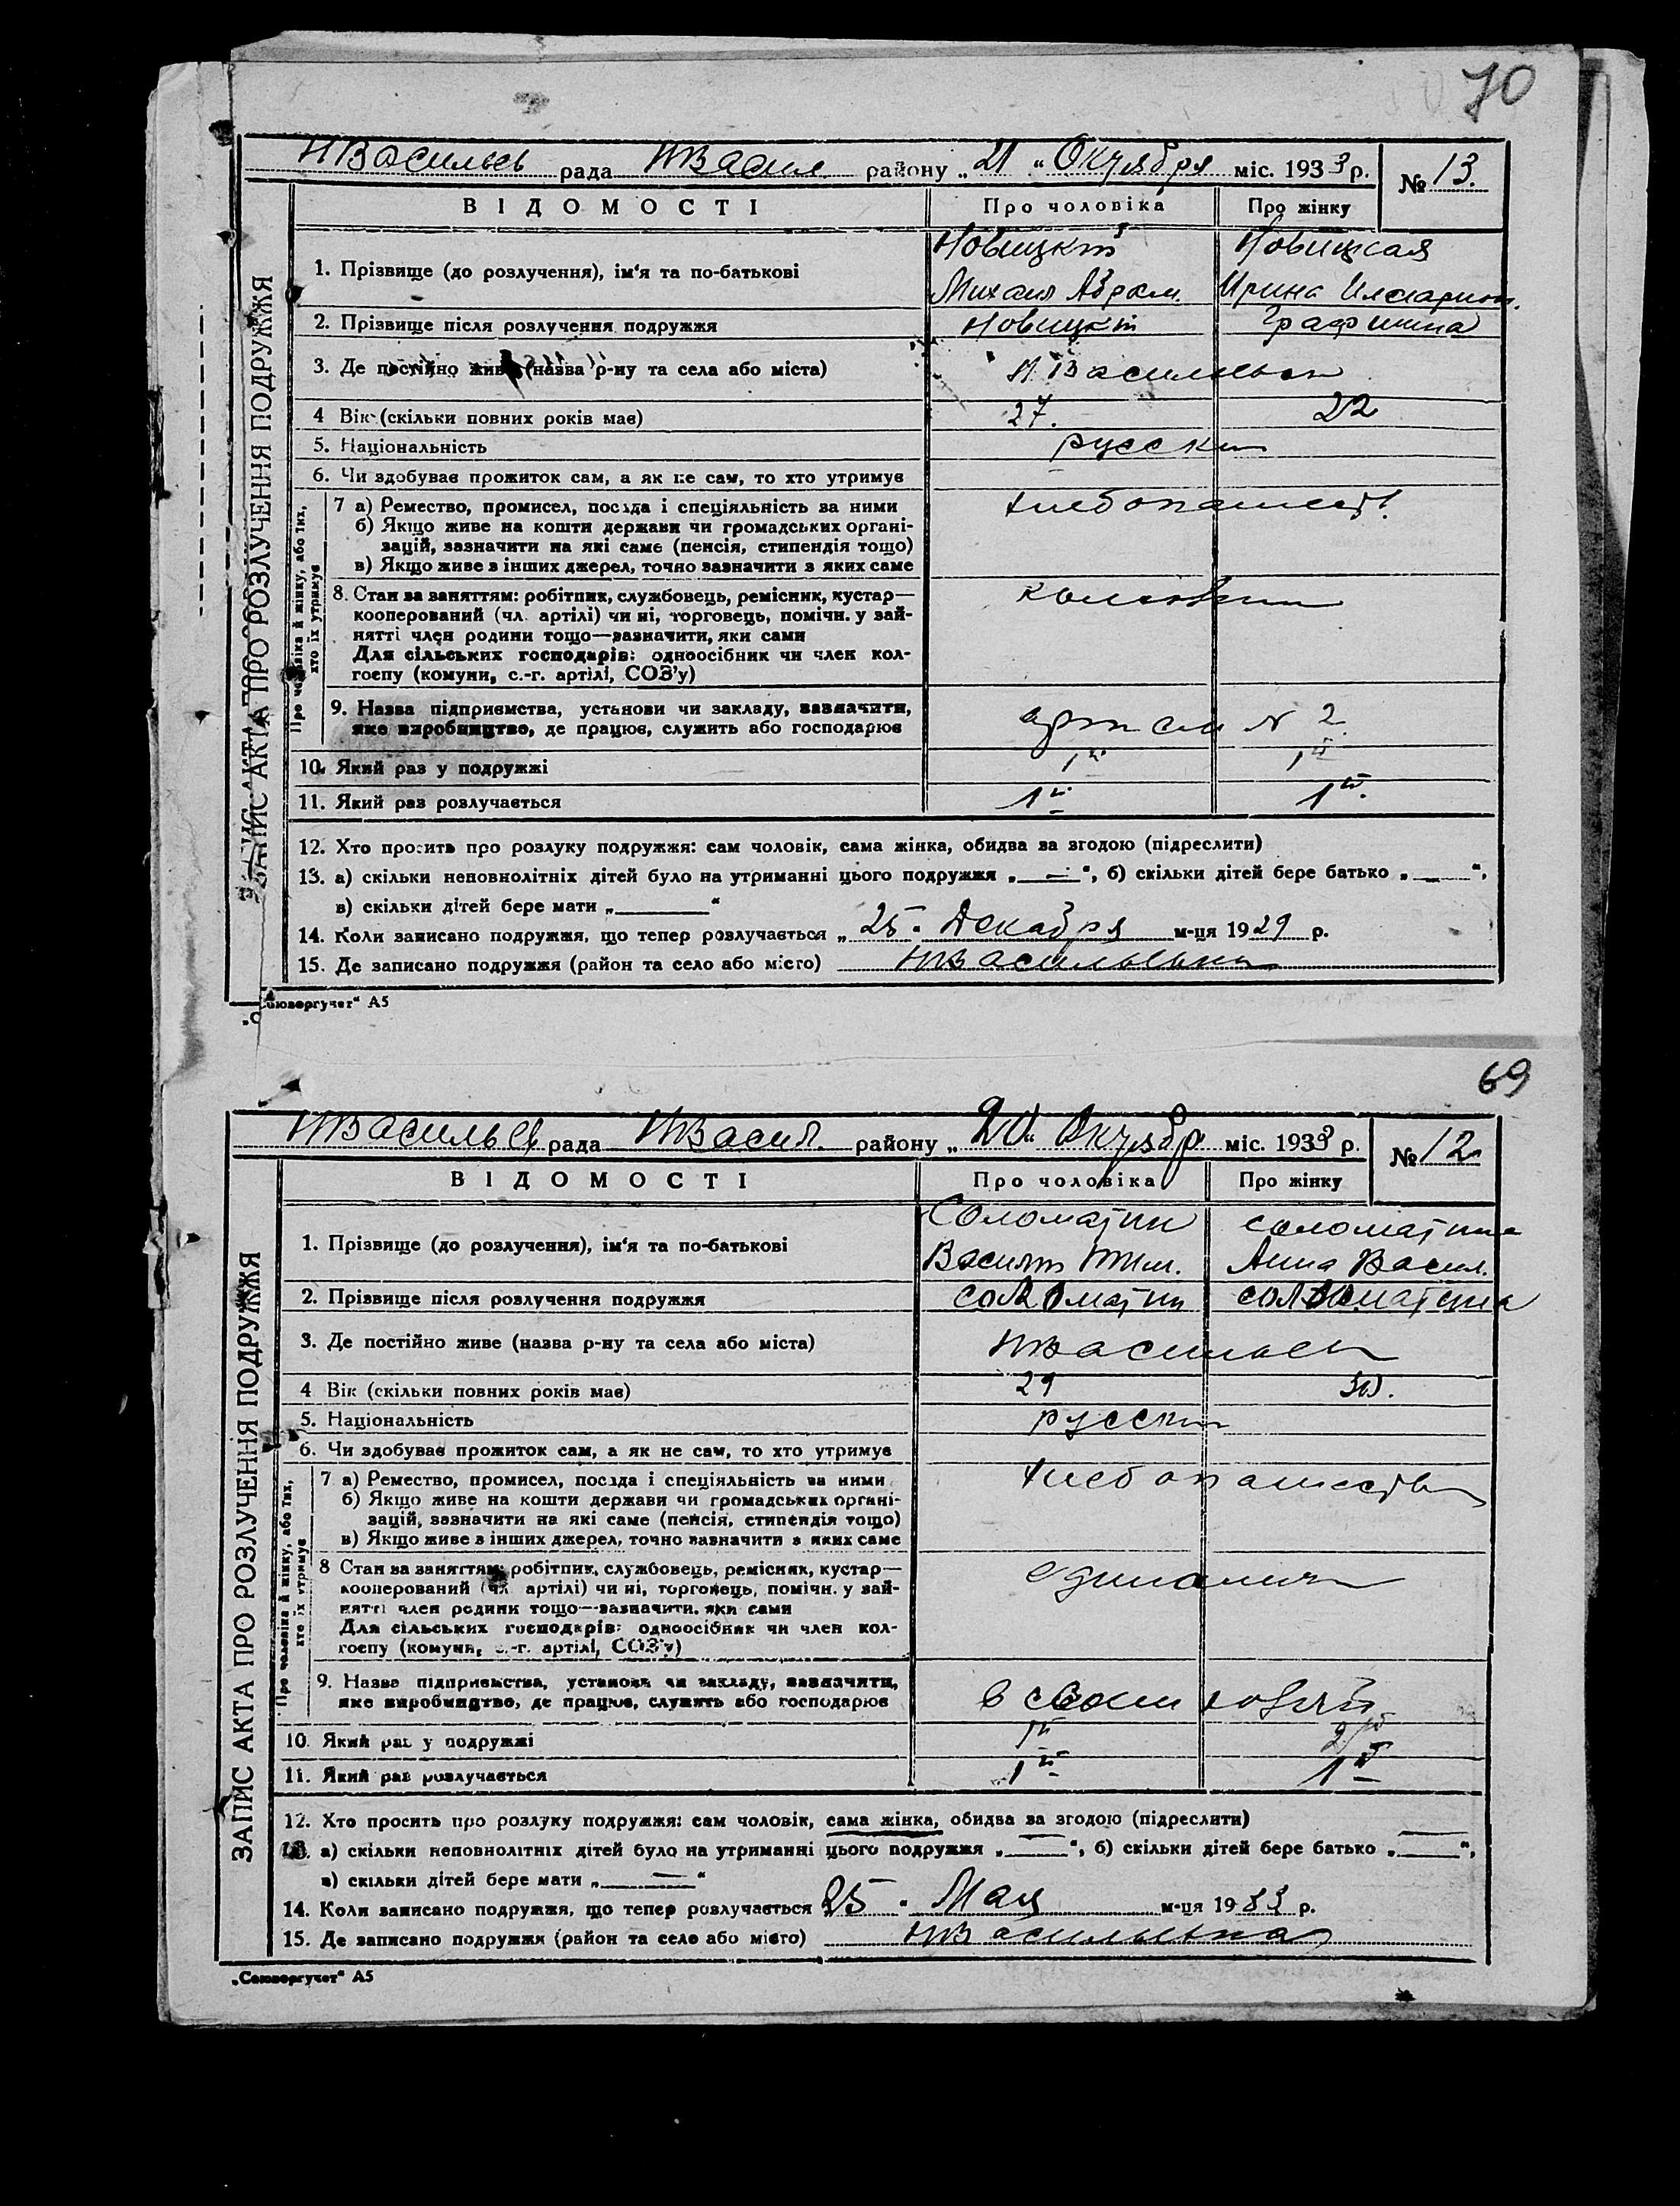 70
НВасильев рада НВасил. району „21" Октября міс. 1933 р. № 13.
ВІДОМОСТІ Про чоловіка Про жінку
1. Прізвище (до розлучення), ім'я та по-батькові Новицкий Новицкая
Михаил Абрам. Ирина Иларион.
2. Прізвище після розлучення подружжя Новицкий Графинина
3. Де постійно живе (назва р-ну та села або міста) Н Васильевка
4 Вік (скільки повних років має) 27. 22
5. Національність русские
6. Чи здобуває прожиток сам, а як не сам, то хто утримує
Про чоловіка й жінку, або тих, хто їх утримує
7 а) Ремество, промисел, посада і спеціяльність за ними хлебопашест.
б) Якщо живе на кошти держави чи громадських органі-
зацій, зазначити на які саме (пенсія, стипендія тощо)
в) Якщо живе з інших джерел, точно зазначити з яких саме
8. Стан за заняттям: робітник, службовець, ремісник, кустар—
кооперований (чл. артілі) чи ні, торговець, помічн. у зай-
нятті член родини тощо—зазначити, яки сами
Для сільських господарів: одноосібник чи член кол-
госпу (комуни, с.-г. артілі, СОЗ'у)
9. Назва підприємства, установи чи закладу, зазначити,
яке виробництво, де працює, служить або господарює артель № 2
10. Який раз у подружжі 1й 1й
11. Який раз розлучається 1й 1й.
12. Хто просить про розлуку подружжя: сам чоловік, сама жінка, обидва за згодою (підреслити)
13. а) скільки неповнолітніх дітей було на утриманні цього подружжя „—", б) скільки дітей бере батько „—",
в) скільки дітей бере мати „ "
14. Коли записано подружжя, що тепер розлучається „25" Декабря м-ця 1929 р.
15. Де записано подружжя (район та село або місто) НВасильевка
ЗАПИС АКТА ПРО РОЗЛУЧЕННЯ ПОДРУЖЖЯ
„Союзоргучет" А5
69
НВасильев рада НВасил. району „20" Октябр міс. 1933 р. № 12
ВІДОМОСТІ Про чоловіка Про жінку
1. Прізвище (до розлучення), ім'я та по-батькові Соломатин соломатина
Василий Тим. Анна Васил.
2. Прізвище після розлучення подружжя соломатин соломатина
3. Де постійно живе (назва р-ну та села або міста) НВасильев
4 Вік (скільки повних років має) 29 30.
5. Національність русские
6. Чи здобуває прожиток сам, а як не сам, то хто утримує
Про чоловіка й жінку, або тих, хто їх утримує
7 а) Ремество, промисел, посада і спеціяльність за ними хлебопашество
б) Якщо живе на кошти держави чи громадських органі-
зацій, зазначити на які саме (пенсія, стипендія тощо)
в) Якщо живе з інших джерел, точно зазначити з яких саме
8 Стан за заняттям: робітник, службовець, ремісник, кустар—
кооперований (чл. артілі) чи ні, торговець, помічн. у зай-
нятті член родини тощо—зазначити, яки сами
Для сільських господарів: одноосібник чи член кол-
госпу (комуни, с.-г. артілі, СОЗ'у)
9. Назва підприємства, установи чи закладу, зазначити,
яке виробництво, де працює, служить або господарює в своем хозяй
10. Який раз у подружжі 1й 2й
11. Який раз розлучається 1й 1й
12. Хто просить про розлуку подружжя: сам чоловік, сама жінка, обидва за згодою (підреслити)
13. а) скільки неповнолітніх дітей було на утриманні цього подружжя „—", б) скільки дітей бере батько „—",
в) скільки дітей бере мати „—"
14. Коли записано подружжя, що тепер розлучається 25 " Мая м-ця 1933 р.
15. Де записано подружжя (район та село або місто) НВасильевка
ЗАПИС АКТА ПРО РОЗЛУЧЕННЯ ПОДРУЖЖЯ
„Союзоргучет" А5